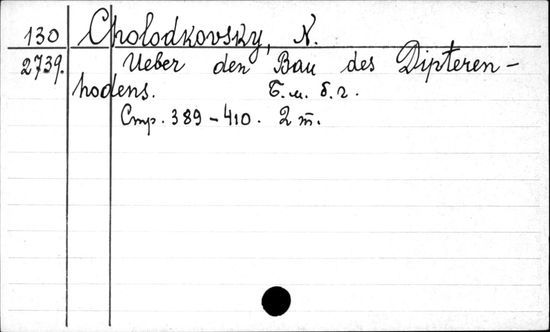 130 Cholodkovsky, N.
2739. Ueber den Bau des Dipteren-
hodens. Б.м. б.г.
Стр. 389-410. 2 т.